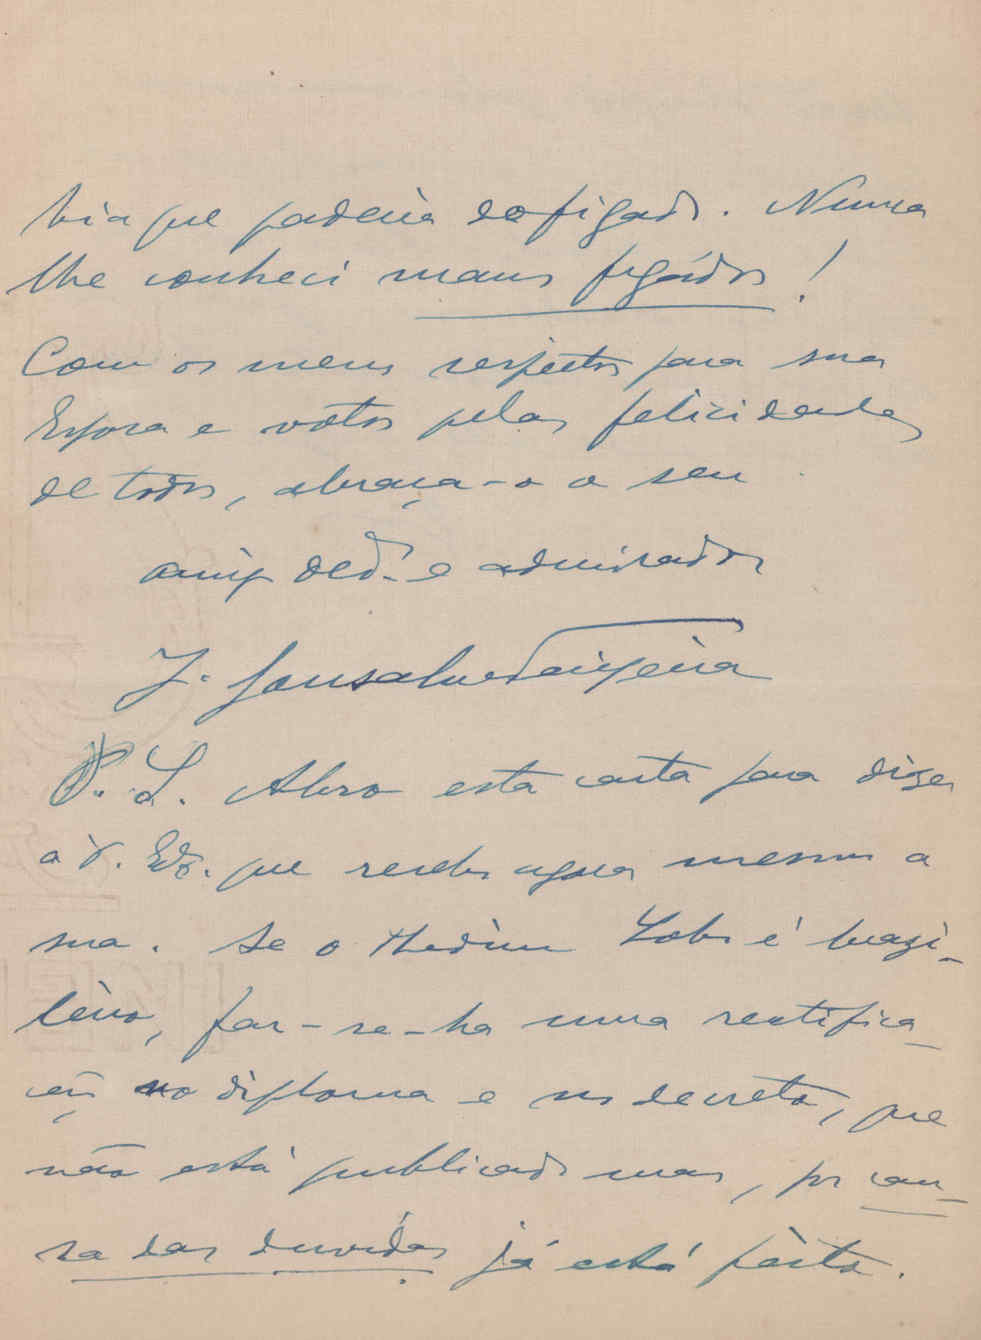 bia que padecia do figado. Nunca
lhe conheci maus figádos!
Com os meus respeitos para sua
Espoza e votos pelas felicidades
de todos, abraça-o o seu
amigo ded.º e admirador
J. Gonsalves Teixeira
P.S. Abro esta carta para dizer
a V. Exª. que recebo agora mesmo a
sua. Se o Thedim Lobo é brazi-
leiro, far-se-ha uma rectifica-
ção no diploma e no decreto, que
não está publicado mas, por cau-
sa das duvidas já está feito.